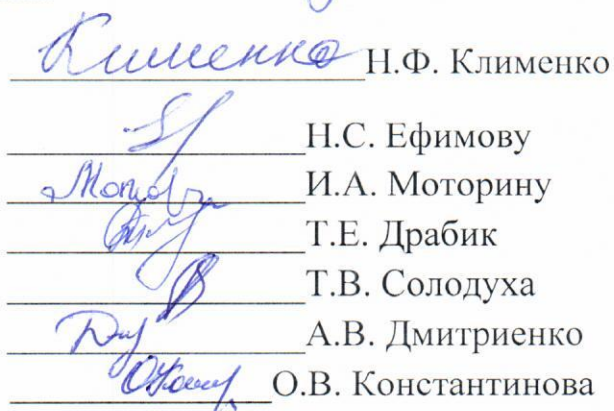 Клименко Н.Ф. Клименко
Н.С. Ефимову
И.А. Моторину
Т.Е. Драбик
Т.В. Солодуха
А.В. Дмитриенко
О.В. Константинова